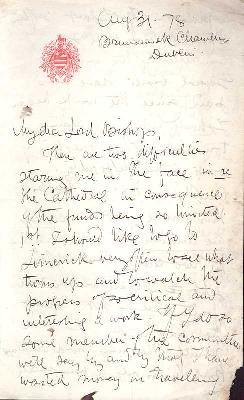 Aug 31 - 78
Brunswick Chambers
Dublin
My dear Lord Bishop,
There are two difficulties
staring me in the face in re
the Cathedral in consequence
of the funds being so limited
1st I should like to go to
Limerick very often to see what
turns up and to watch the
progress of so critical and
interesting a work. If I do so
some member of the committee
will say by and by that I have
wasted money in travelling